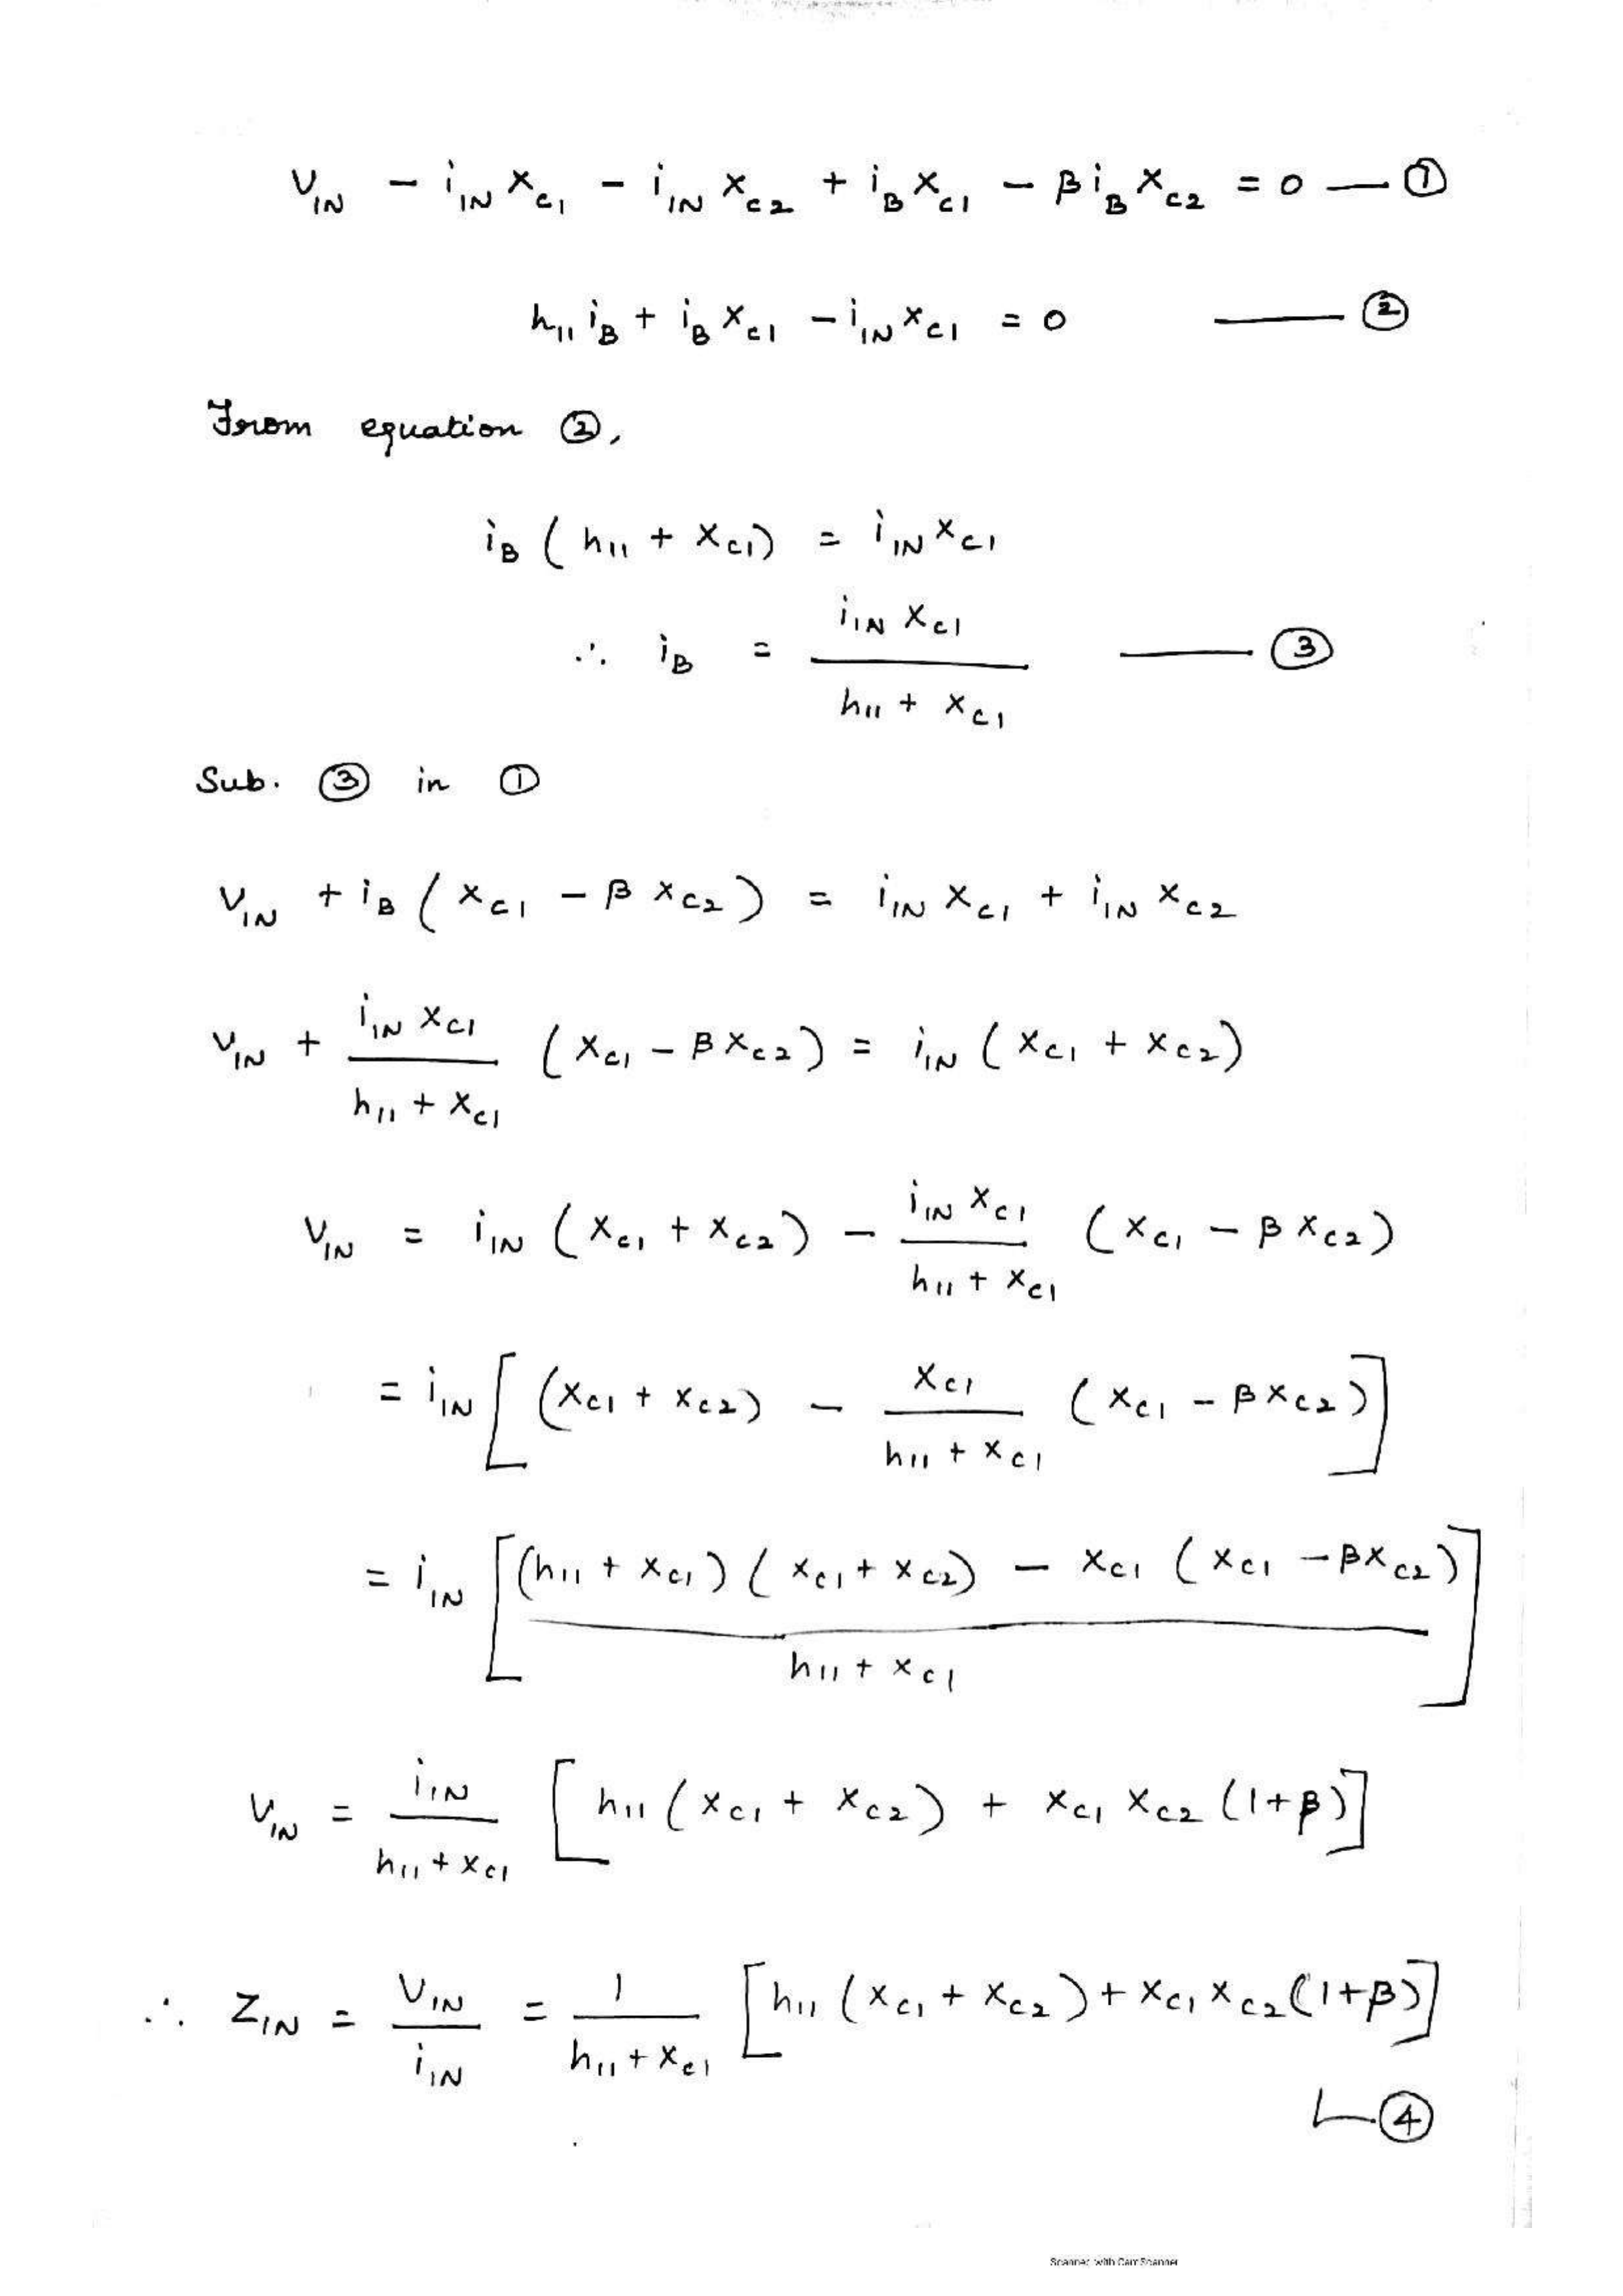 V_IN - i_IN X_C1 - i_IN X_C2 + i_B X_C1 - β i_B X_C2 = 0 — ①
h_11 i_B + i_B X_C1 - i_IN X_C1 = 0 — ②
From equation ②,
i_B (h_11 + X_C1) = i_IN X_C1
∴ i_B = (i_IN X_C1) / (h_11 + X_C1) — ③
Sub. ③ in ①
V_IN + i_B (X_C1 - β X_C2) = i_IN X_C1 + i_IN X_C2
V_IN + (i_IN X_C1) / (h_11 + X_C1) (X_C1 - β X_C2) = i_IN (X_C1 + X_C2)
V_IN = i_IN (X_C1 + X_C2) - (i_IN X_C1) / (h_11 + X_C1) (X_C1 - β X_C2)
= i_IN [ (X_C1 + X_C2) - X_C1 / (h_11 + X_C1) (X_C1 - β X_C2) ]
= i_IN [ ((h_11 + X_C1) (X_C1 + X_C2) - X_C1 (X_C1 - β X_C2)) / (h_11 + X_C1) ]
V_IN = i_IN / (h_11 + X_C1) [ h_11 (X_C1 + X_C2) + X_C1 X_C2 (1+β) ]
∴ Z_IN = V_IN / i_IN = 1 / (h_11 + X_C1) [ h_11 (X_C1 + X_C2) + X_C1 X_C2 (1+β) ]
④
Scanned with CamScanner